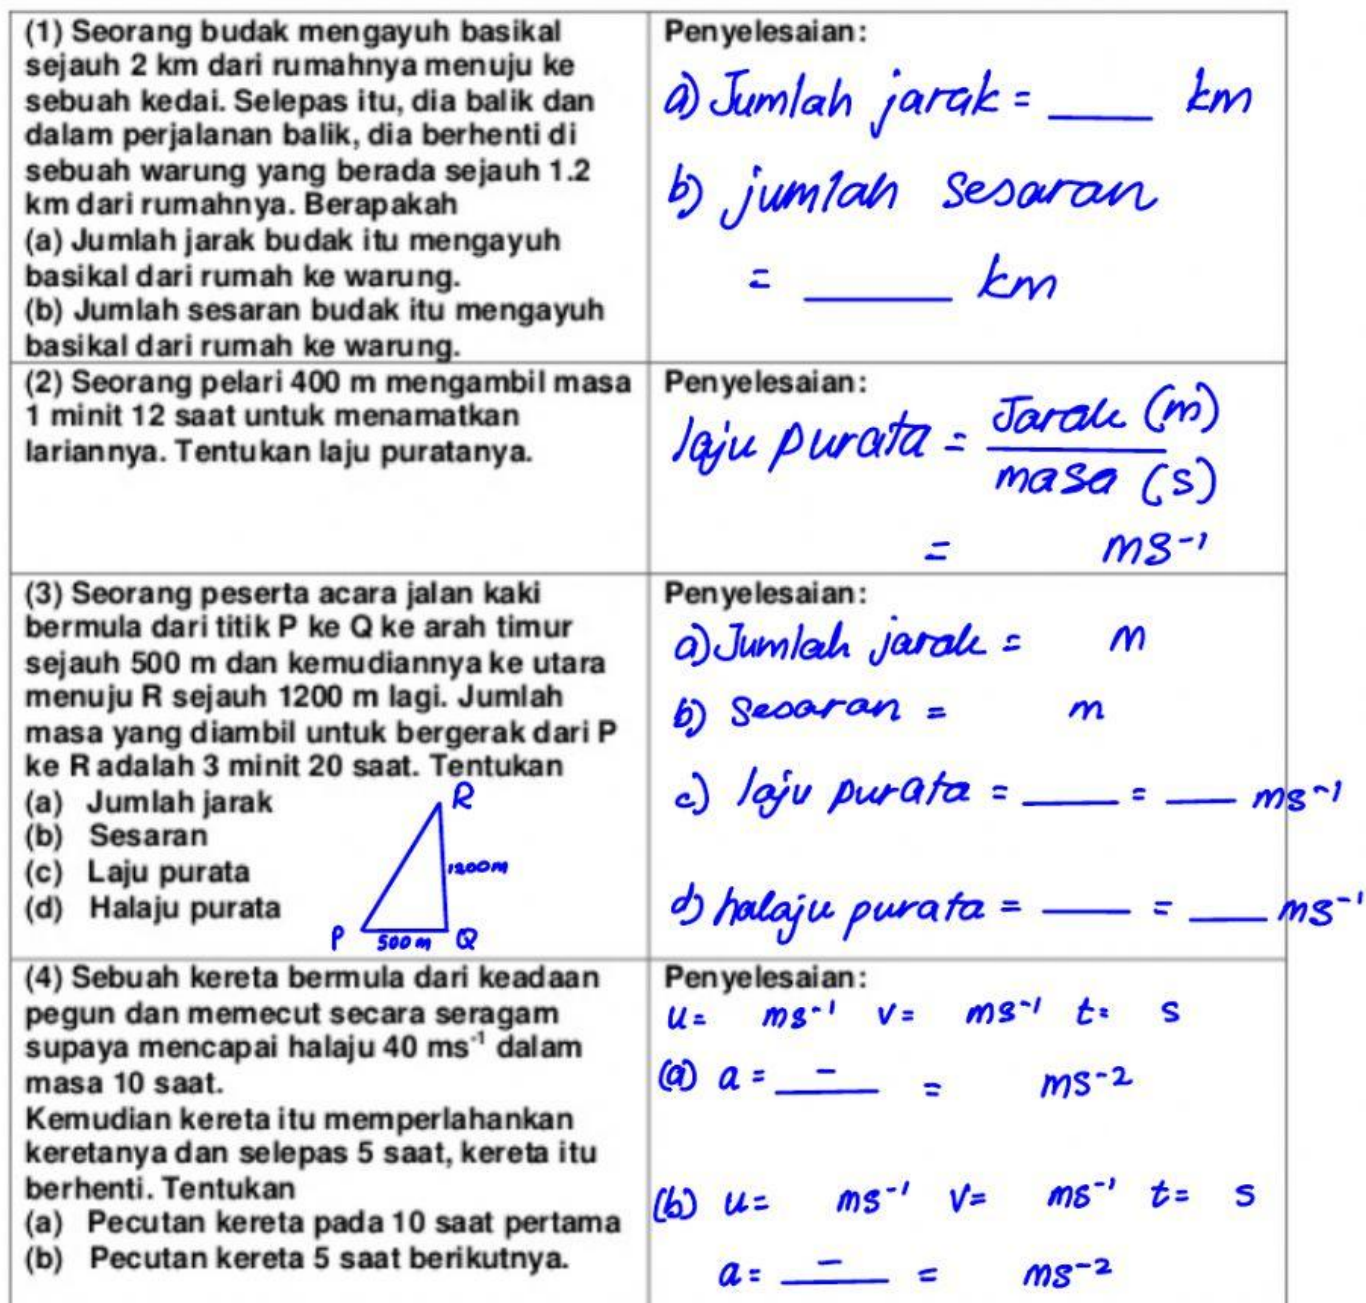 (1) Seorang budak mengayuh basikal
sejauh 2 km dari rumahnya menuju ke
sebuah kedai. Selepas itu, dia balik dan
dalam perjalanan balik, dia berhenti di
sebuah warung yang berada sejauh 1.2
km dari rumahnya. Berapakah
(a) Jumlah jarak budak itu mengayuh
basikal dari rumah ke warung.
(b) Jumlah sesaran budak itu mengayuh
basikal dari rumah ke warung.
Penyelesaian:
a) Jumlah jarak = ____ km
b) jumlah sesaran
= ____ km
(2) Seorang pelari 400 m mengambil masa
1 minit 12 saat untuk menamatkan
lariannya. Tentukan laju puratanya.
Penyelesaian:
laju purata = Jarak (m)
masa (s)
= ms⁻¹
(3) Seorang peserta acara jalan kaki
bermula dari titik P ke Q ke arah timur
sejauh 500 m dan kemudiannya ke utara
menuju R sejauh 1200 m lagi. Jumlah
masa yang diambil untuk bergerak dari P
ke R adalah 3 minit 20 saat. Tentukan
(a) Jumlah jarak
(b) Sesaran
(c) Laju purata
(d) Halaju purata
R
1200m
P 500m Q
Penyelesaian:
a) Jumlah jarak = m
b) Sesaran = m
c) laju purata = ____ = ____ ms⁻¹
d) halaju purata = ____ = ____ ms⁻¹
(4) Sebuah kereta bermula dari keadaan
pegun dan memecut secara seragam
supaya mencapai halaju 40 ms⁻¹ dalam
masa 10 saat.
Kemudian kereta itu memperlahankan
keretanya dan selepas 5 saat, kereta itu
berhenti. Tentukan
(a) Pecutan kereta pada 10 saat pertama
(b) Pecutan kereta 5 saat berikutnya.
Penyelesaian:
u= ms⁻¹ v= ms⁻¹ t= s
(a) a = - = ms⁻²
(b) u= ms⁻¹ v= ms⁻¹ t= s
a = - = ms⁻²